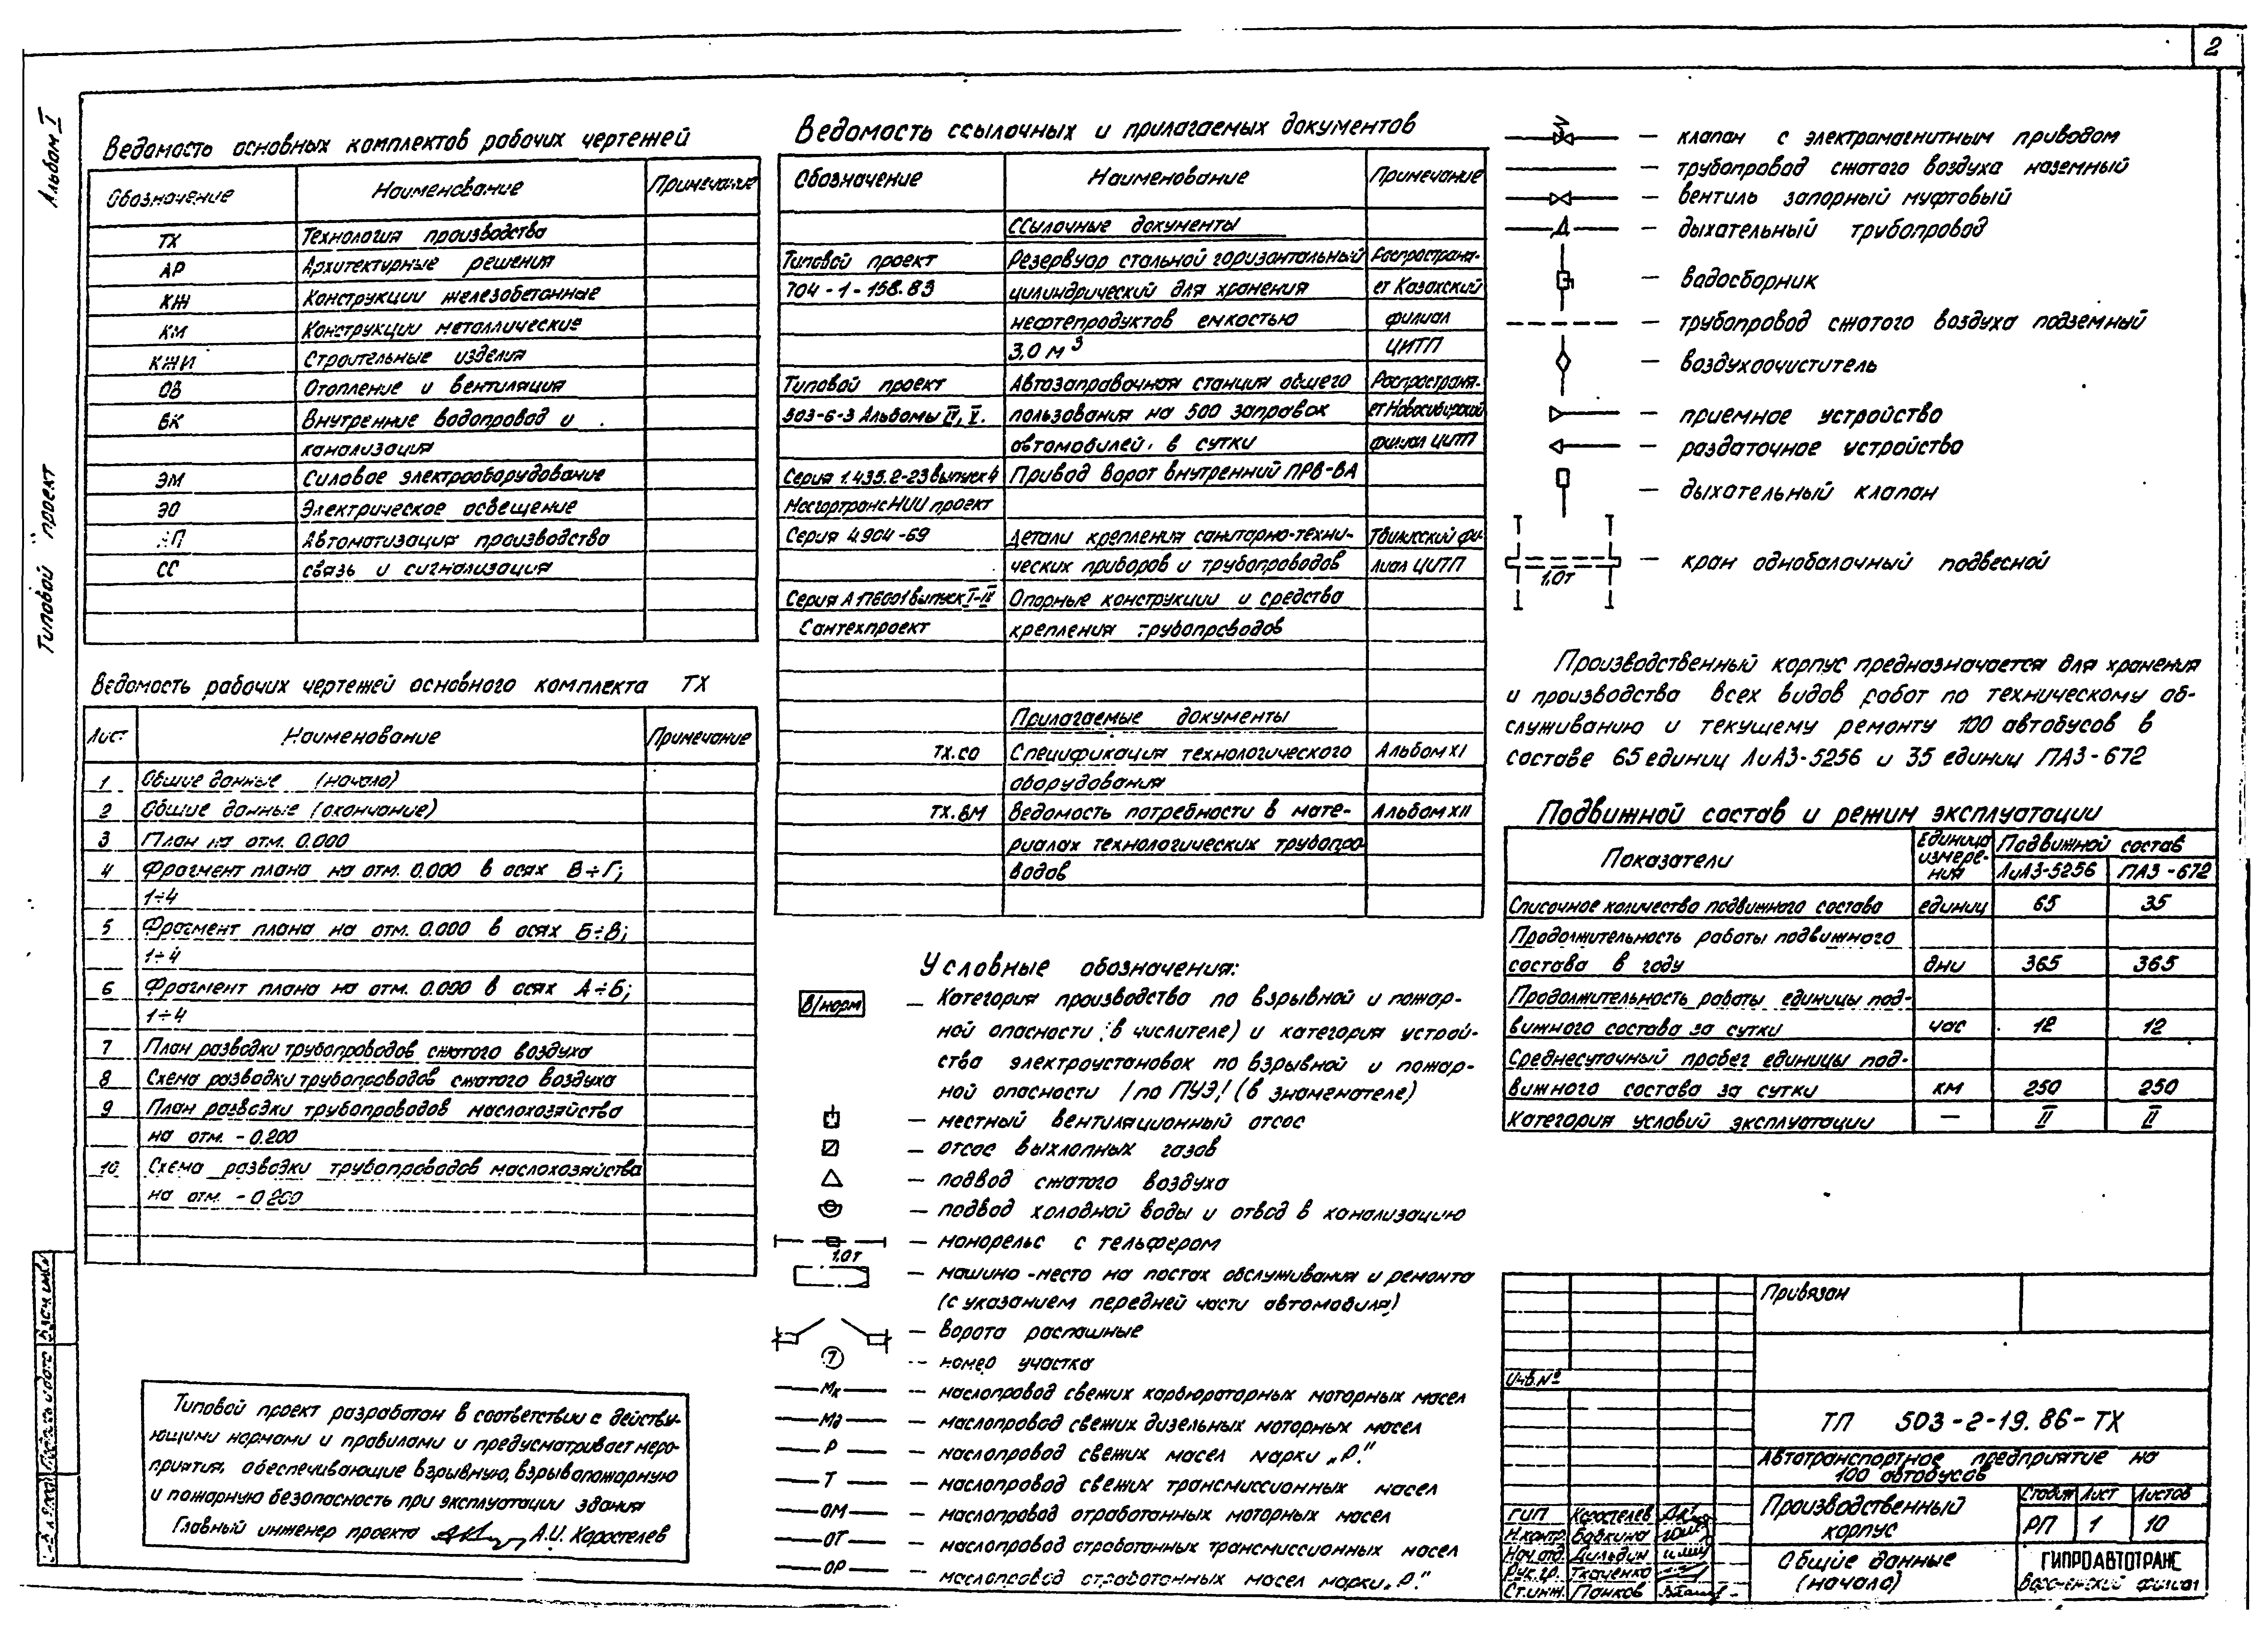 2
Альбом I
Типовой проект
Ведомость основных комплектов рабочих чертежей
Обозначение Наименование Примечание
ТХ Технология производства
АР Архитектурные решения
КЖ Конструкции железобетонные
КМ Конструкции металлические
КЖИ Строительные изделия
ОВ Отопление и вентиляция
ВК Внутренние водопровод и
канализация
ЭМ Силовое электрооборудование
ЭО Электрическое освещение
АП Автоматизация производства
СС Связь и сигнализация
Ведомость рабочих чертежей основного комплекта ТХ
Лист Наименование Примечание
1 Общие данные (начало)
2 Общие данные (окончание)
3 План на отм. 0.000
4 Фрагмент плана на отм. 0.000 в осях В÷Г;
1÷4
5 Фрагмент плана на отм. 0.000 в осях Б÷В;
1÷4
6 Фрагмент плана на отм. 0.000 в осях А÷Б;
1÷4
7 План разводки трубопроводов сжатого воздуха
8 Схема разводки трубопроводов сжатого воздуха
9 План разводки трубопроводов маслохозяйства
на отм. -0.200
10 Схема разводки трубопроводов маслохозяйства
на отм. -0.200
Типовой проект разработан в соответствии с действу-
ющими нормами и правилами и предусматривает меро-
приятия, обеспечивающие взрывную, взрывопожарную
и пожарную безопасность при эксплуатации здания
Главный инженер проекта А.И. Коростелев
Ведомость ссылочных и прилагаемых документов
Обозначение Наименование Примечание
Ссылочные документы
Типовой проект Резервуар стальной горизонтальный Распространя-
704-1-158.83 цилиндрический для хранения ет Казахский
нефтепродуктов емкостью филиал
3,0 м³ ЦИТП
Типовой проект Автозаправочная станция общего Распространя-
503-6-3 Альбомы IV, V. пользования на 500 заправок ет Новосибирский
автомобилей в сутки филиал ЦИТП
Серия 1.435.2-23 выпуск 4 Привод ворот внутренний ПРВ-ВА
МосгортрансНИИпроект
Серия 4.904-69 Детали крепления санитарно-техни- Тбилисский фи-
ческих приборов и трубопроводов лиал ЦИТП
Серия А17Б001 выпуск I-IV Опорные конструкции и средства
Сантехпроект крепления трубопроводов
Прилагаемые документы
ТХ.СО Спецификация технологического Альбом XI
оборудования
ТХ.ВМ Ведомость потребности в мате- Альбом XII
риалах технологических трубопро
водов
Условные обозначения:
В/норм — Категория производства по взрывной и пожар-
ной опасности (в числителе) и категория устрой-
ства электроустановок по взрывной и пожар-
ной опасности /по ПУЭ/ (в знаменателе)
— местный вентиляционный отсос
— отсос выхлопных газов
— подвод сжатого воздуха
— подвод холодной воды и отвод в канализацию
— монорельс с тельфером
1,0т
— машино-место на постах обслуживания и ремонта
(с указанием передней части автомобиля)
— ворота распашные
7 — номер участка
Мк — маслопровод свежих карбюраторных моторных масел
Мд — маслопровод свежих дизельных моторных масел
Р — маслопровод свежих масел марки „Р."
Т — маслопровод свежих трансмиссионных масел
ОМ — маслопровод отработанных моторных масел
ОТ — маслопровод отработанных трансмиссионных масел
ОР — маслопровод отработанных масел марки „Р."
— клапан с электромагнитным приводом
— трубопровод сжатого воздуха наземный
— вентиль запорный муфтовый
Д — дыхательный трубопровод
— водосборник
— трубопровод сжатого воздуха подземный
— воздухоочиститель
— приемное устройство
— раздаточное устройство
— дыхательный клапан
— кран однобалочный подвесной
1,0т
Производственный корпус предназначается для хранения
и производства всех видов работ по техническому об-
служиванию и текущему ремонту 100 автобусов в
составе 65 единиц ЛиАЗ-5256 и 35 единиц ПАЗ-672
Подвижной состав и режим эксплуатации
Показатели Единица измере- ния Подвижной состав
ЛиАЗ-5256 ПАЗ-672
Списочное количество подвижного состава единиц 65 35
Продолжительность работы подвижного
состава в году дни 365 365
Продолжительность работы единицы под-
вижного состава за сутки час 12 12
Среднесуточный пробег единицы под-
вижного состава за сутки км 250 250
Категория условий эксплуатации — II II
Привязан
Инв.№
ТП 503-2-19.86-ТХ
Автотранспортное предприятие на
100 автобусов
Производственный
корпус
Стадия Лист Листов
РП 1 10
ГИП Коростелев
Н.контр. Бабкина
Нач.отд. Дильдин
Рук.гр. Ткаченко
Ст.инж. Панков
Общие данные
(начало)
ГИПРОАВТОТРАНС
Воронежский филиал